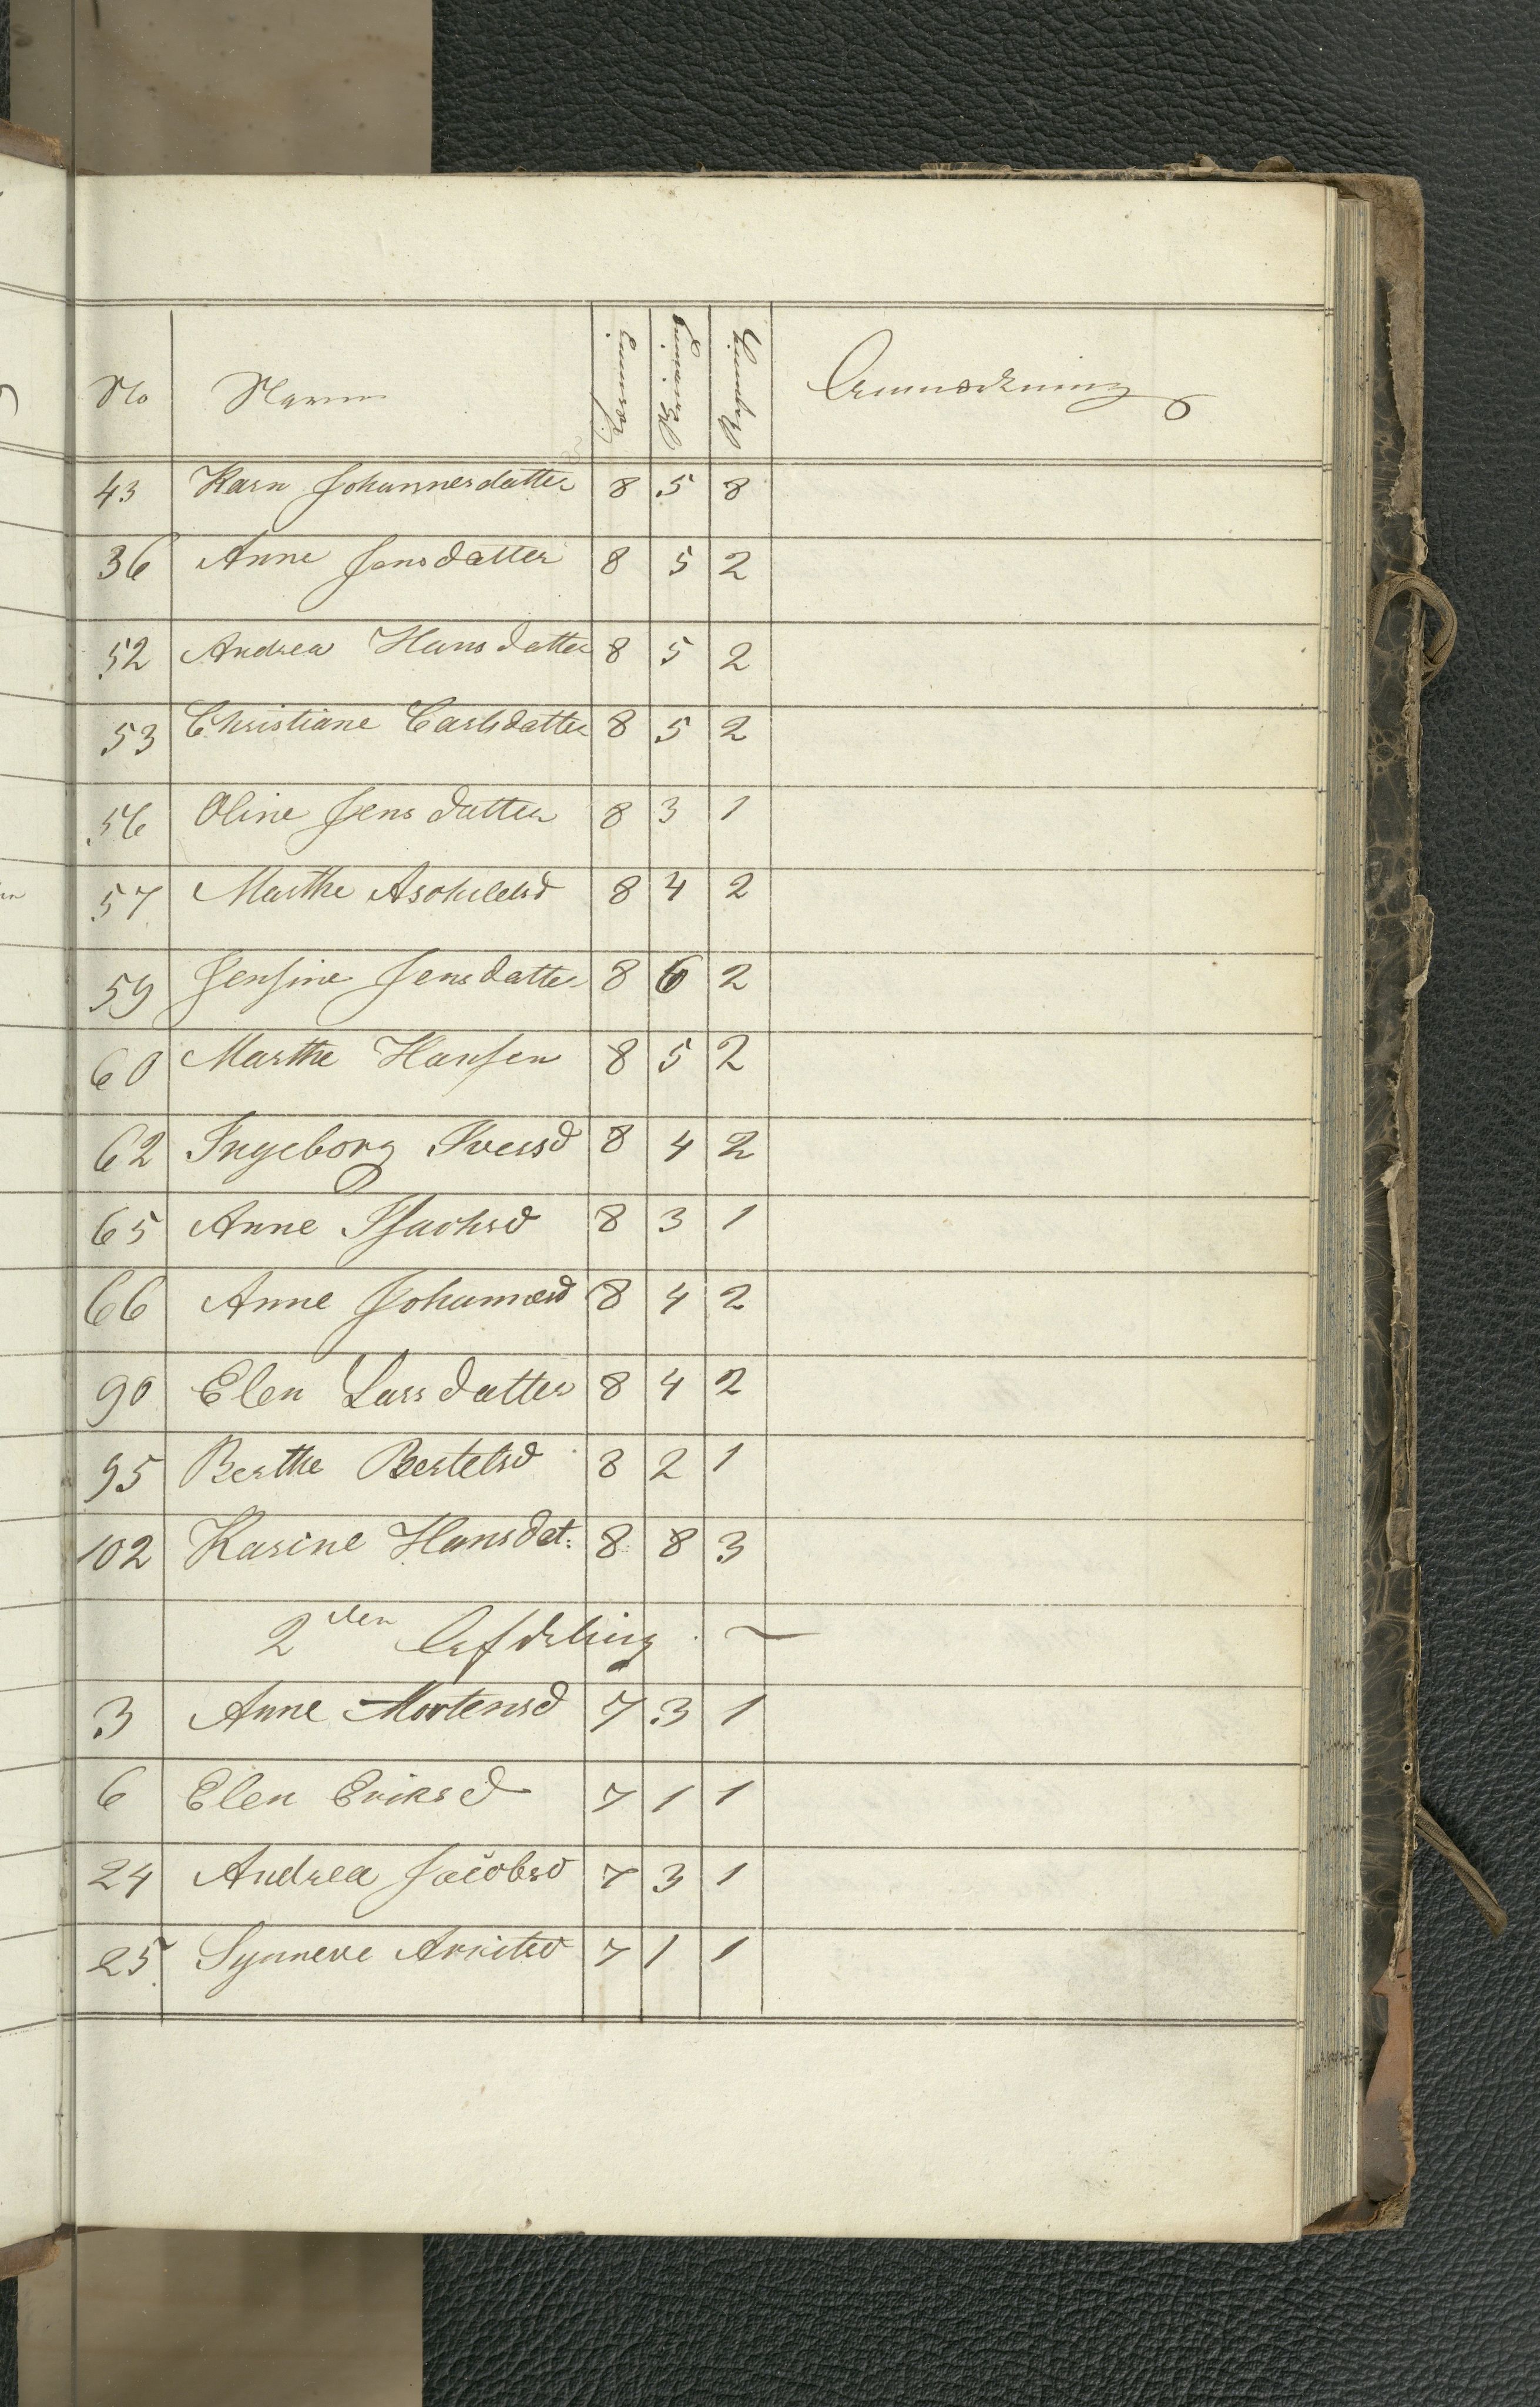 No Navn Anmærkning
43 Karn Johannesdatter 8 5 8
36 Anne Jensdatter 8 5 2
52 Andrea Hansdatter 8 5 2
53 Christiane Carlsdatter 8 5 2
56 Oline Jensdatter 8 3 1
57 Marthe 8 4 2
59 Jensine Jensdatter 8 6 2
60 Marthe Hansen 8 5 2
62 Ingeborg Iversd 8 4 2
65 Anne Isachsd 8 3 1
66 Anne Johannesd 8 4 2
90 Elen Larsdatter 8 4 2
95 Berthe Bertelsd 8 2 1
102 Karine Hansdat: 8 8 3
2den Afdeling
3 Anne Mortensd 7 3 1
6 Elen Eriksd 7 1 1
24 Andrea Jacobsd 7 3 1
25 Synneve 7 1 1